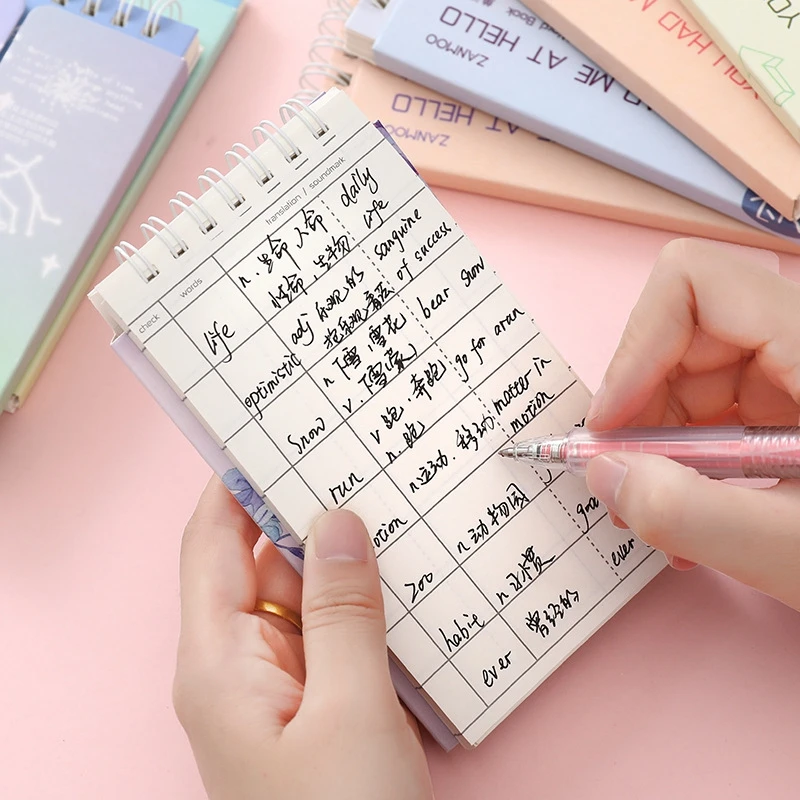 check words translation / soundmark
life n. 生命 人命 daily
性命 生物 life
optimistic adj 乐观的 sanguine
抱乐观看法 of success
snow n 下雪, 雪花 bear snow
v. 下雪
run v 跑. 奔跑 go for a run
n. 跑
otion n 运动. 移动 matter in
motion
zoo n 动物园
habit n 习惯
ever 曾经的 ever
ZANMOO
ME AT HELLO
ZANMOO
AT HELLO
YOU HAD M
YO